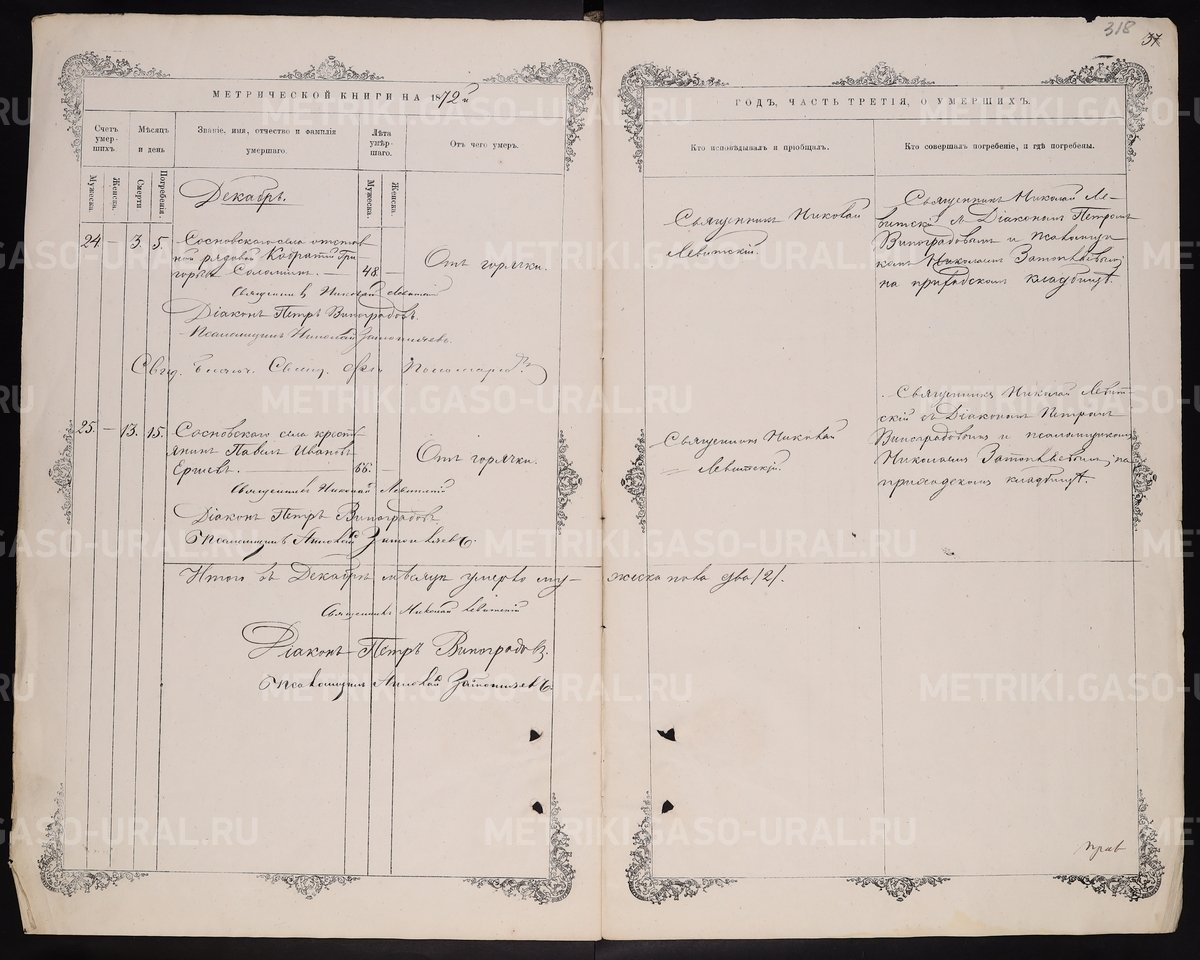 318
37
МЕТРИЧЕСКОЙ КНИГИ НА 1872й
ГОДЪ, ЧАСТЬ ТРЕТІЯ, О УМЕРШИХЪ.
Счетъ умер-шихъ.
Мѣсяцъ и день
Званіе, имя, отчество и фамилія умершаго.
Лѣта умер-шаго.
Отъ чего умеръ.
Кто исповѣдывалъ и пріобщалъ.
Кто совершалъ погребеніе, и гдѣ погребены.
Мужеска.
Женска.
Смерти
Погребенія.
Мужеска.
Женска.
Декабрь.
24 — 3. 5.
Сосновскаго села отстав
ной рядовой Гри
горьевъ — 48
Отъ горячки.
Священникъ Николай
Левитскій.
Священникъ Николай Ле-
витскій съ Діакономъ Петромъ
Виноградовымъ и Псаломщи
комъ Николаемъ
на приходскомъ кладбищѣ.
Священникъ Николай Левитскій
Діаконъ Петръ Виноградовъ.
Псаломщикъ Николай
25. — 13. 15.
Сосновскаго села кресть
янинъ Павелъ Ивановъ
Отъ горячки.
Священникъ Николай
Левитскій.
Священникъ Николай Левит-
скій съ Діакономъ Петромъ
Виноградовымъ и псаломщикомъ
Николаемъ на
приходскомъ кладбищѣ.
Священникъ Николай Левитскій
Діаконъ Петръ Виноградовъ
Псаломщикъ Николай
Итого въ Декабрѣ мѣсяцѣ умерло му-
жеска пола два /2/.
Священникъ Николай Левитскій
Діаконъ Петръ Виноградовъ.
Псаломщикъ Николай
METRIKI.GASO-URAL.RU